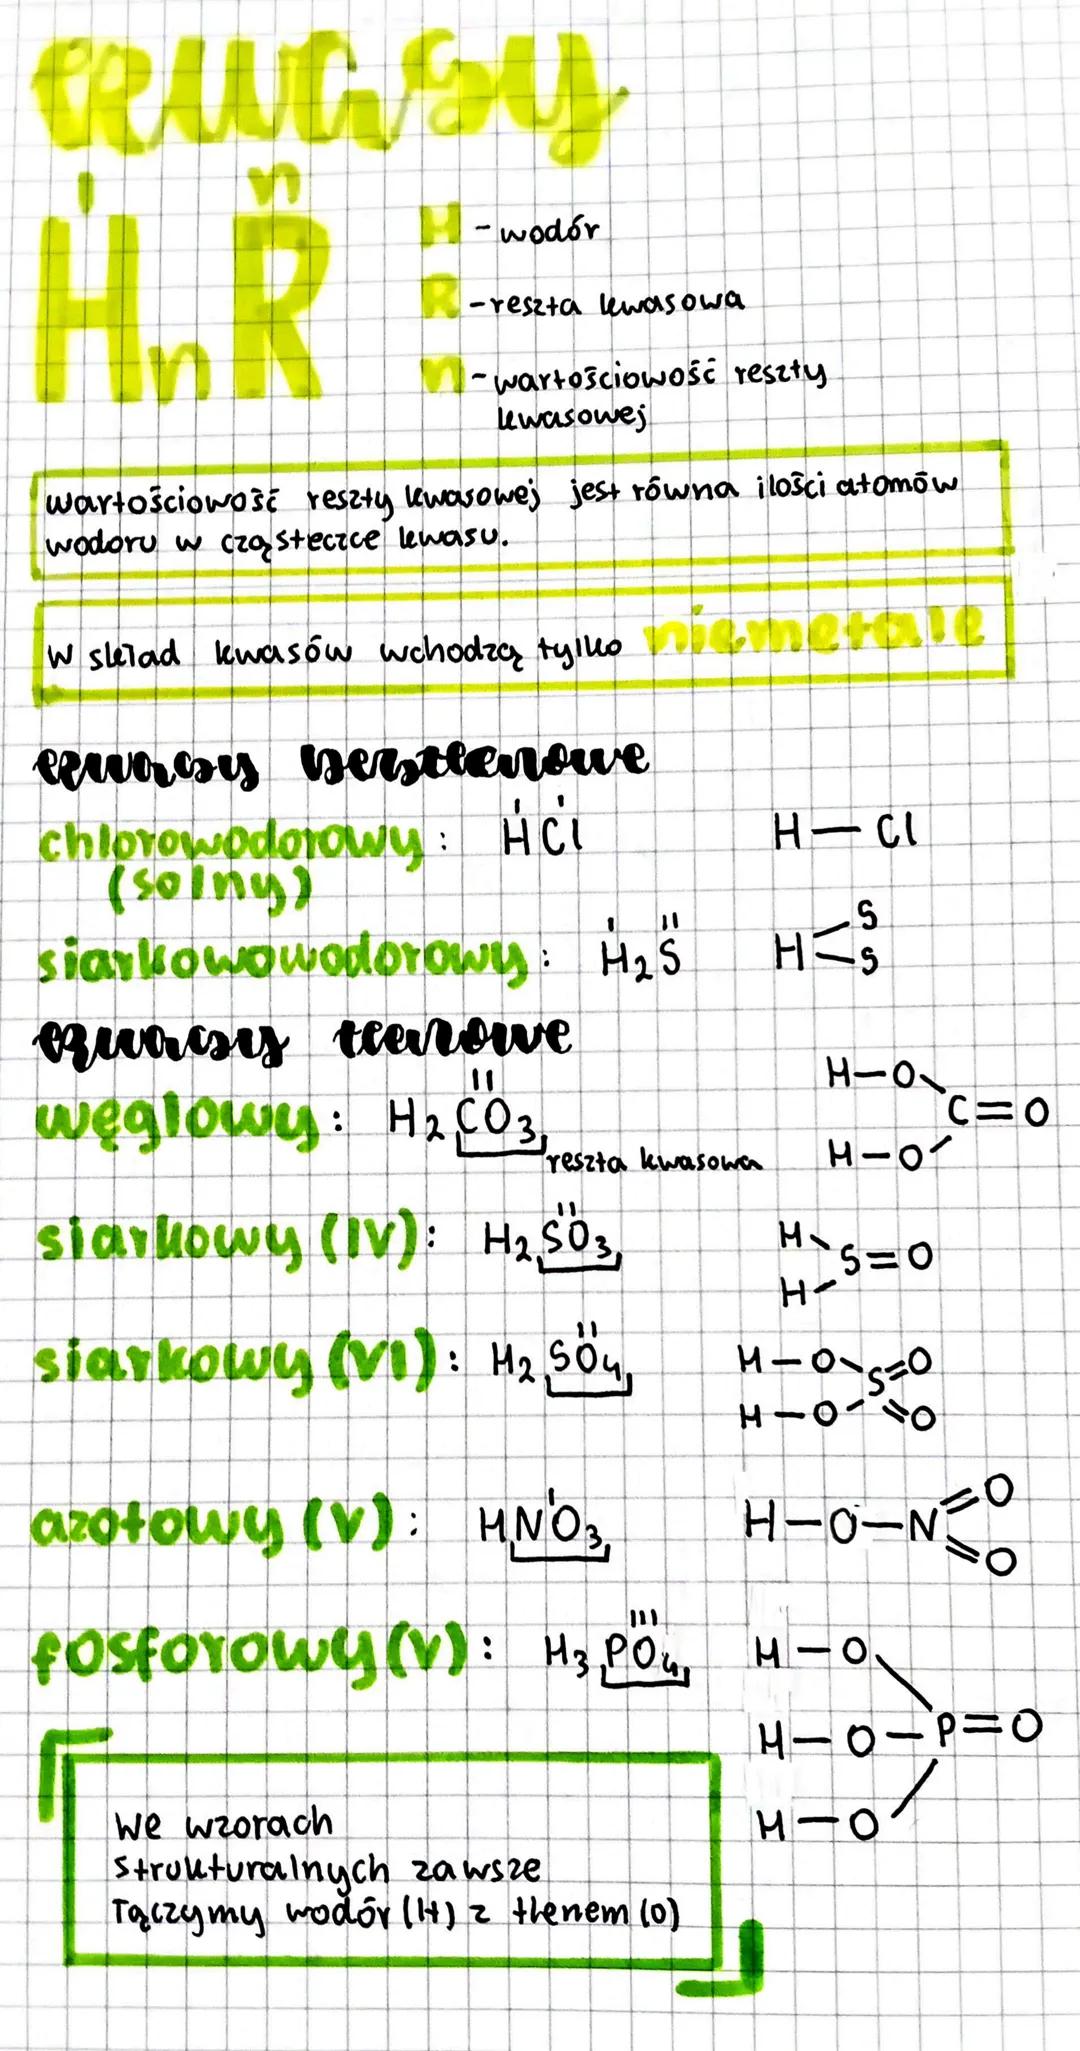 kwasy
I n
HnR
H - wodór
R - reszta kwasowa
n - wartościowość reszty
kwasowej
wartościowość reszty kwasowej jest równa ilości atomów
wodoru w cząsteczce kwasu.
W skład kwasów wchodzą tylko niemetale
kwasy beztlenowe
chlorowodorowy: HCl H—Cl
(solny)
siarkowowodorowy: H₂S H S S
kwasy tlenowe
węglowy: H₂CO₃ H—O C=O H—O
reszta kwasowa
siarkowy (IV): H₂SO₃ H S=O H
siarkowy (VI): H₂SO₄ H—O S=O H—O =O
azotowy (V): HNO₃ H—O—N =O =O
fosforowy (V): H₃PO₄ H—O
H—O—P=O
H—O
We wzorach
strukturalnych zawsze
łączymy wodór (H) z tlenem (O)